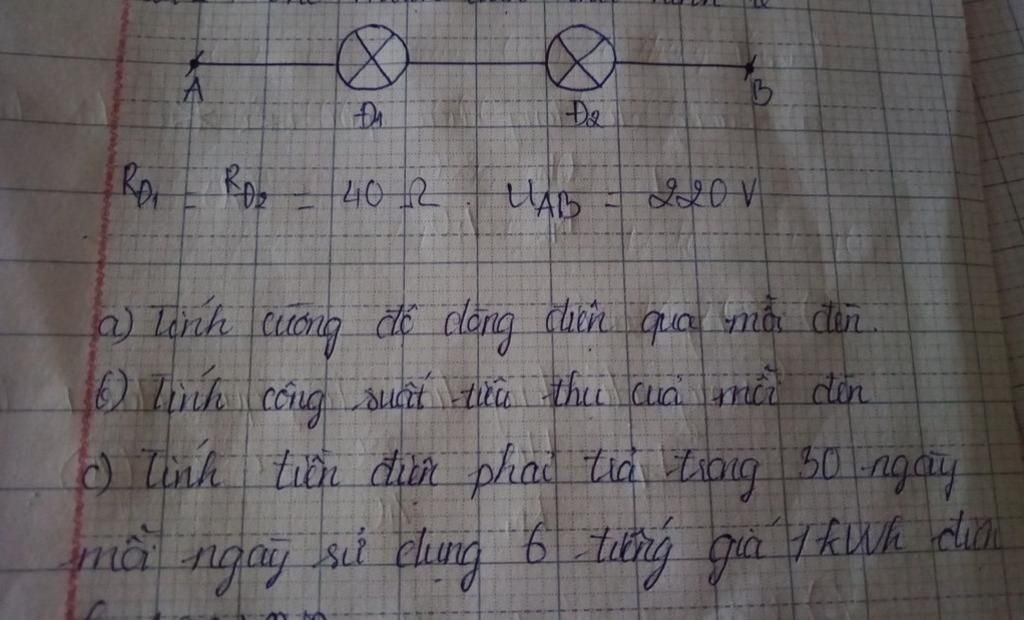 A
B
Đ1
Đ2
RĐ1 = RĐ2 = 40 Ω. UAB = 220 V
a) Tính cường độ dòng điện qua mỗi đèn.
b) Tính công suất tiêu thụ của mỗi đèn
c) Tính tiền điện phải trả trong 30 ngày
mỗi ngày sử dụng 6 tiếng giá 1 kWh điện